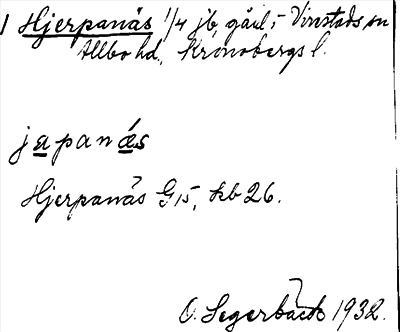 1 Hjerpanäs 1/4 jb, gård; Virestads sn
Allbo hd., Kronobergs l.
japanäs
Hjerpanäs G15, kb 26.
O. Segerbäck 1932.